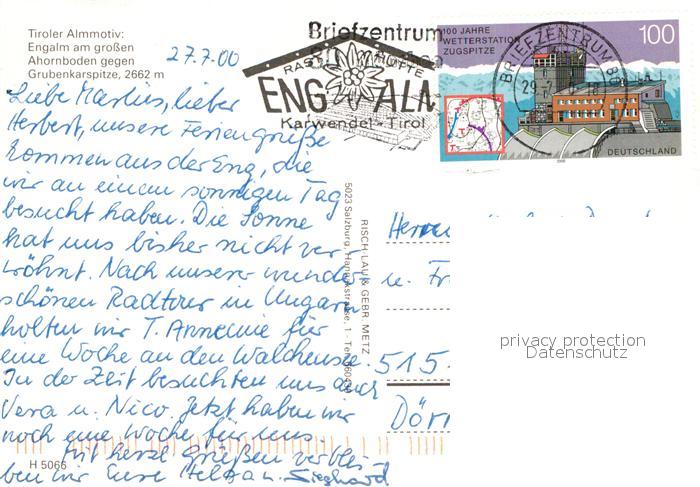 Tiroler Almmotiv:
Engalm am großen
Ahornboden gegen
Grubenkarspitze, 2662 m
27.7.00
Briefzentrum
RAST HÜTTE
ENG ALM
Karwendel-Tirol
100 JAHRE
WETTERSTATION
ZUGSPITZE
100
DEUTSCHLAND
BRIEFZENTRUM 8
29.7.
Liebe Marlies, lieber
Herbert, unsere Feriengrüße
kommen aus der Eng, die
wir an einem sonnigen Tag
besucht haben. Die Sonne
hat uns bisher nicht ver-
wöhnt. Nach unserer wunder-
schönen Radtour in Ungarn
holten wir T. Annemie für
eine Woche an den Walchensee.
In der Zeit besuchten uns auch
Vera u. Nico. Jetzt haben wir
noch eine Woche für uns.
Mit herzl. Grüßen verblei-
ben wir Eure Helga u. Sieghard
H 5066
RISCH-LAU & GEBR. METZ
5023 Salzburg,
Herrn
u. Fr
515
Dör
privacy protection
Datenschutz